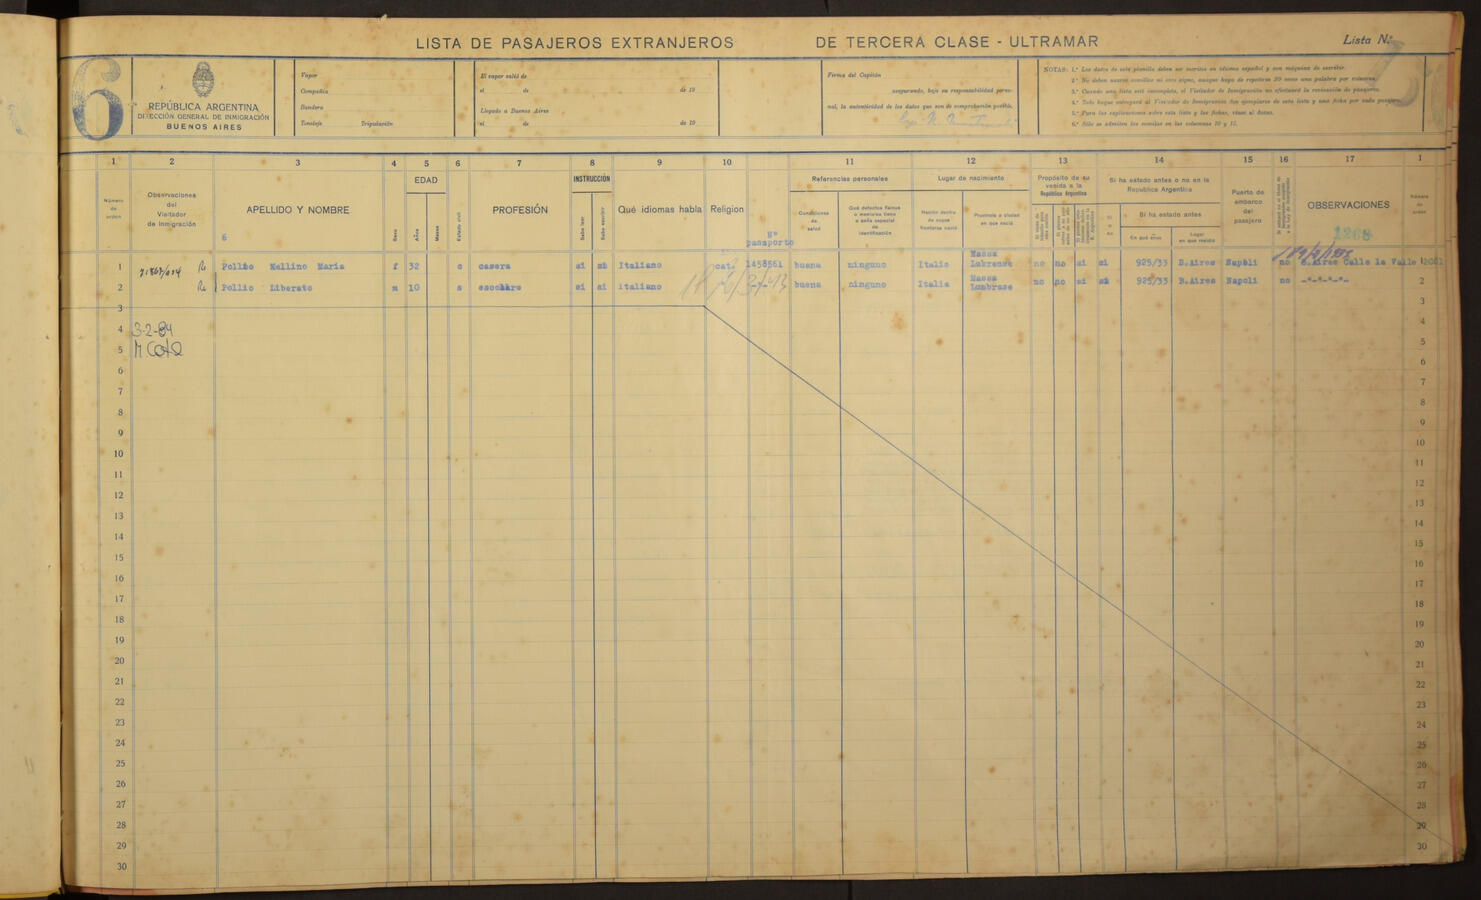 LISTA DE PASAJEROS EXTRANJEROS DE TERCERA CLASE - ULTRAMAR
Lista N.º
6
REPÚBLICA ARGENTINA
DIRECCIÓN GENERAL DE INMIGRACIÓN
BUENOS AIRES
Vapor
Compañía
Bandera
Tonelaje Tripulación
El vapor salió de
el de de 19
Llegado a Buenos Aires
el de de 19
Firma del Capitán
asegurando, bajo su responsabilidad perso-
nal, la autenticidad de los datos que son de comprobación posible.
NOTAS: 1.ª Los datos de esta planilla deben ser escritos en idioma español y con máquina de escribir.
2.ª No deben usarse comillas ni otro signo, aunque haya de repetirse 20 veces una palabra por columna.
3.ª Cuando una lista esté incompleta, el Visitador de Inmigración no efectuará la revisación de pasajeros.
4.ª Todo buque entregará al Visitador de Inmigración dos ejemplares de esta lista y una ficha por cada pasajero.
5.ª Para las explicaciones sobre esta lista y las fichas, véase al dorso.
6.ª Sólo se admiten las comillas en las columnas 10 y 15.
1 2 3 4 5 6 7 8 9 10 11 12 13 14 15 16 17 1
Número de orden
Observaciones del Visitador de Inmigración
APELLIDO Y NOMBRE
6
Sexo
EDAD
Años
Meses
Estado civil
PROFESIÓN
INSTRUCCIÓN
Sabe leer
Sabe escribir
Qué idiomas habla
Religion
Nº pasaporto
Referencias personales
Condiciones de salud
Qué defectos físicos o mentales tiene o seña especial de identificación
Lugar de nacimiento
Nación dentro de cuyas fronteras nació
Provincia o ciudad en que nació
Propósito de su venida a la República Argentina
Si ha estado antes o no en la República Argentina
Si ha estado antes
En qué años
Lugar en que residió
Puerto de embarco del pasajero
OBSERVACIONES
1268
Número de orden
1 Pollio Mellino Maria f 32 c casera si si Italiano cat. 1458561 buena ninguno Italia Massa Lubrense no no si si 925/33 B.Aires Napoli no B.Aires Calle la Valle 2061
2 Pollio Liberato m 10 s escolare si si italiano -"- buena ninguno Italia Massa Lumbrase no no si si 925/33 B.Aires Napoli no -"-"-"-"- 2
3 3
4 3-2-84 4
5 5
6 6
7 7
8 8
9 9
10 10
11 11
12 12
13 13
14 14
15 15
16 16
17 17
18 18
19 19
20 20
21 21
22 22
23 23
24 24
25 25
26 26
27 27
28 28
29 29
30 30